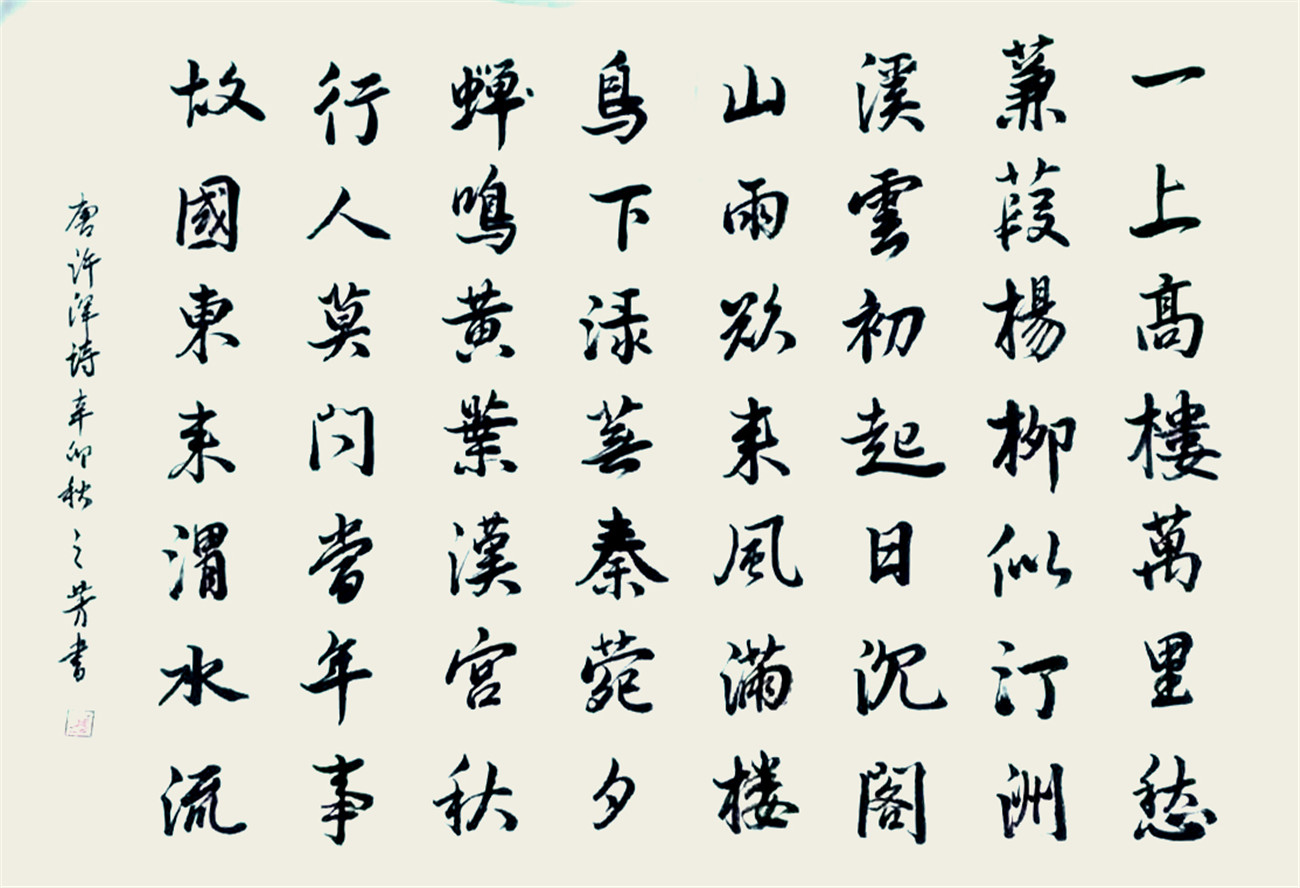 一上高樓萬里愁
蒹葭楊柳似汀洲
溪雲初起日沉閣
山雨欲来風滿楼
鳥下渌蕪秦菀夕
蟬鳴黃葉漢宮秋
行人莫问當年事
故國東来渭水流
唐许渾诗辛卯秋之芳書